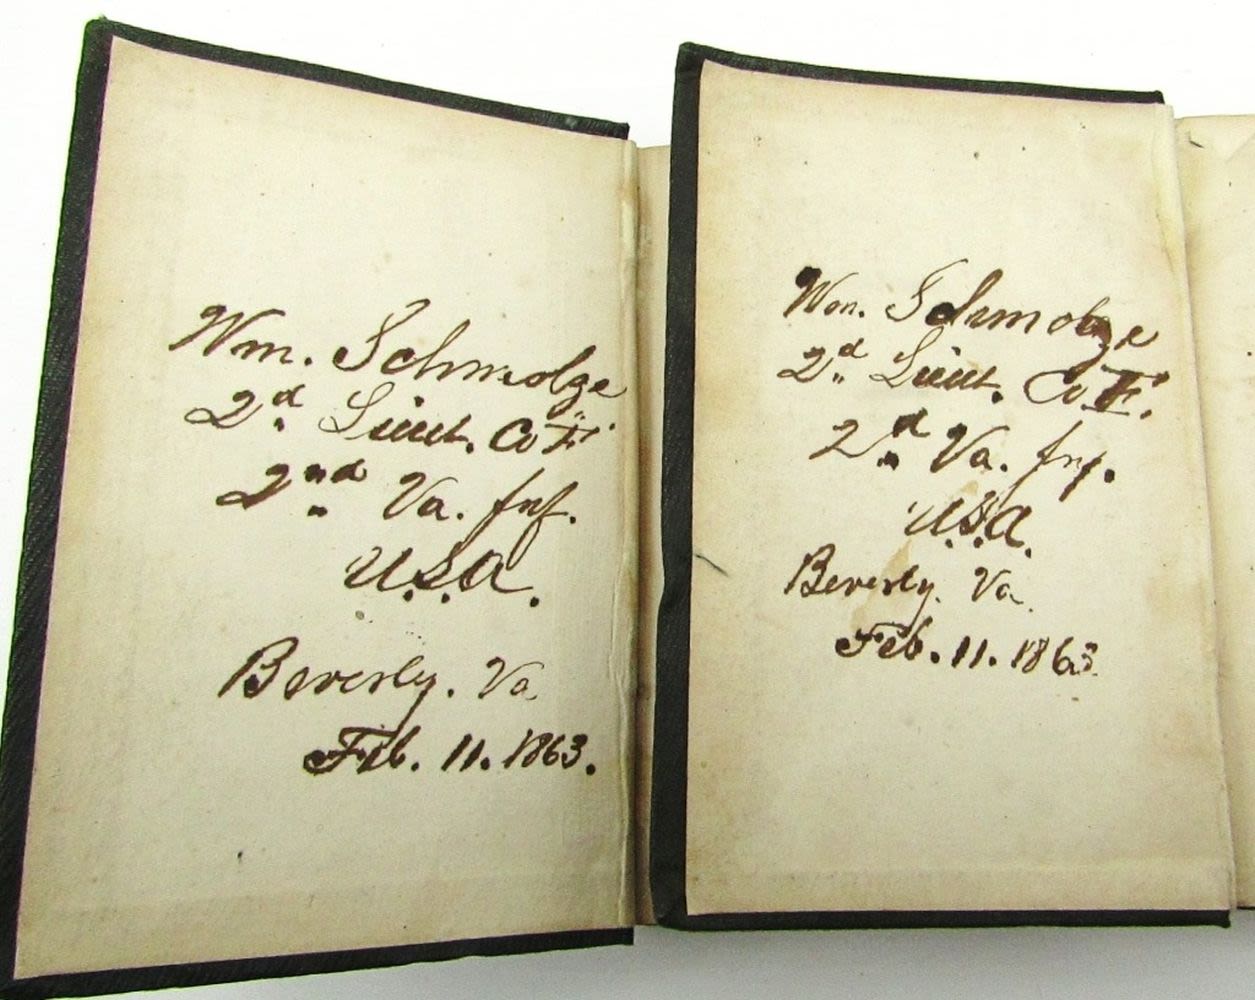 Wm. Schmolze
2d Lieut. Co "F".
2nd Va. Inf.
U.S.A.
Beverly. Va
Feb. 11. 1863.
Wm. Schmolze
2d Lieut. Co "F".
2d Va. Inf.
U.S.A.
Beverly. Va.
Feb. 11. 1863.